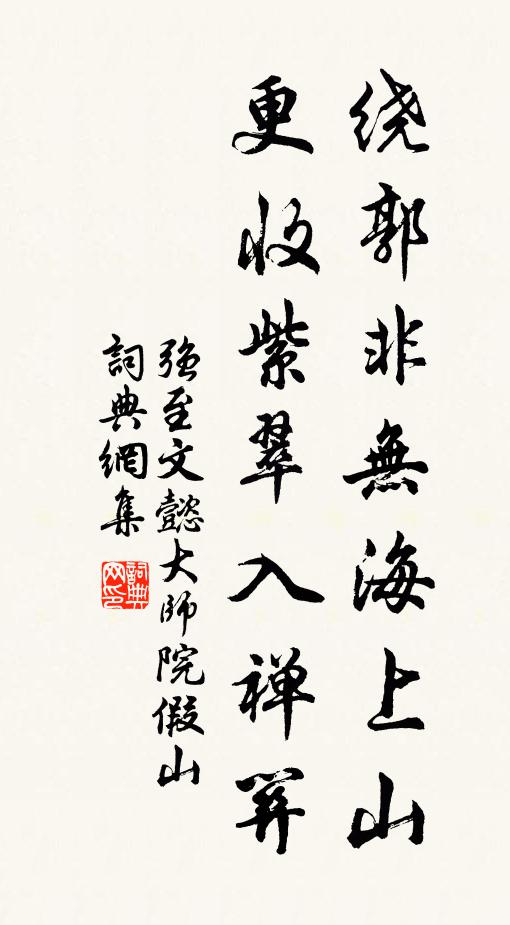 绕郭非無海上山
更收紫翠入禅關
強至文懿大師院假山
詞典網集
詞典网印